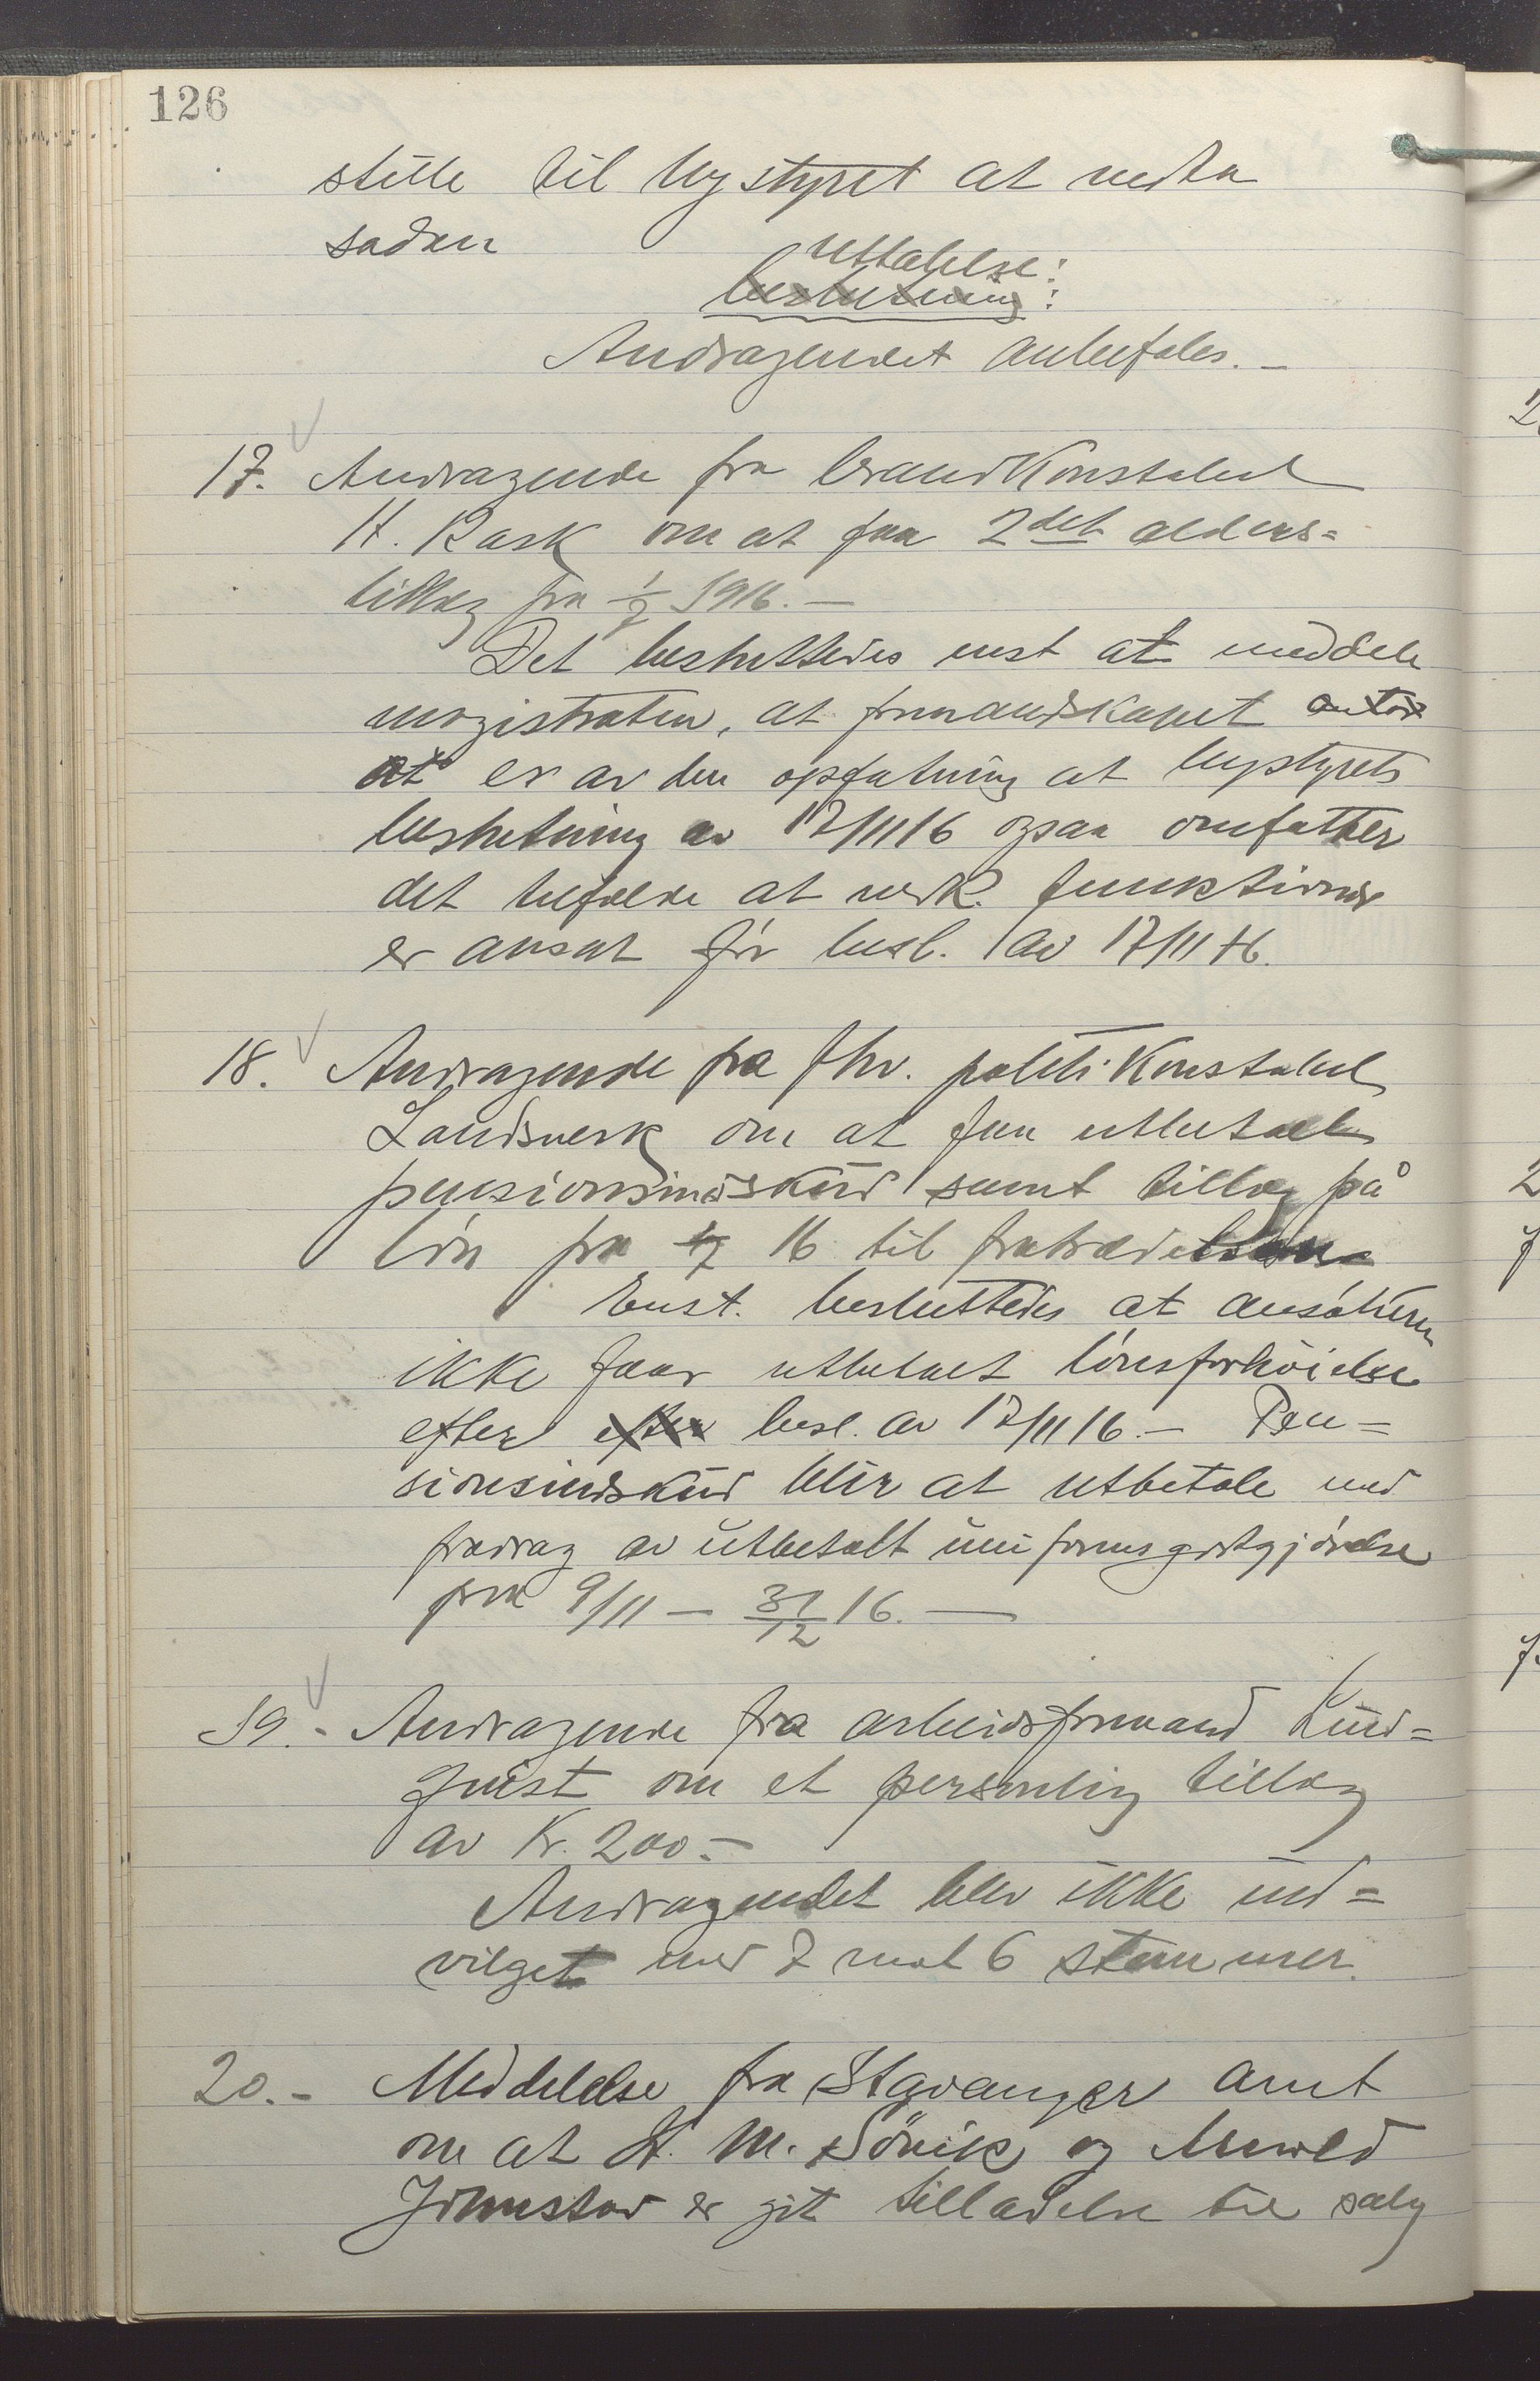 126
stille til bystyret at vedta
sadan
uttalelse:
beslutning:
Andragendet anbefales.-
17. Andragende fra brandkonstabel
H. Rask om at faa 2det alders=
tillæg fra 1/7 1916.-
Det besluttedes enst at meddele
magistraten, at formandskapet
at er av den opfatning at bystyrets
beslutning av 17/11 16 ogsaa omfatter
det tilfælde at vedk. funktionær
er ansat før besl. av 17/11 16.
18. Andragende fra fhv. politikonstabel
Landsverk om at faa utbetalt
pensionsindskud samt tillæg på
løn fra 1/7 16 til fratrædelsen
Enst. besluttedes at ansøkeren
ikke faar utbetalt lønsforhøielse
efter efter besl. av 17/11 16.- Pen=
sionsindskud blir at utbetale med
fradrag av utbetalt uniformsgodtgjørelse
fra 9/11 - 31/12 16.-
19.- Andragende fra arbeidsformand Lind=
quist om et personlig tillæg
av Kr. 200.-
Andragendet blev ikke ind=
vilget med 7 mot 6 stemmer.
20.- Meddelelse fra Stavanger amt
om at St. M. Sövik og
er git tilladelse til salg